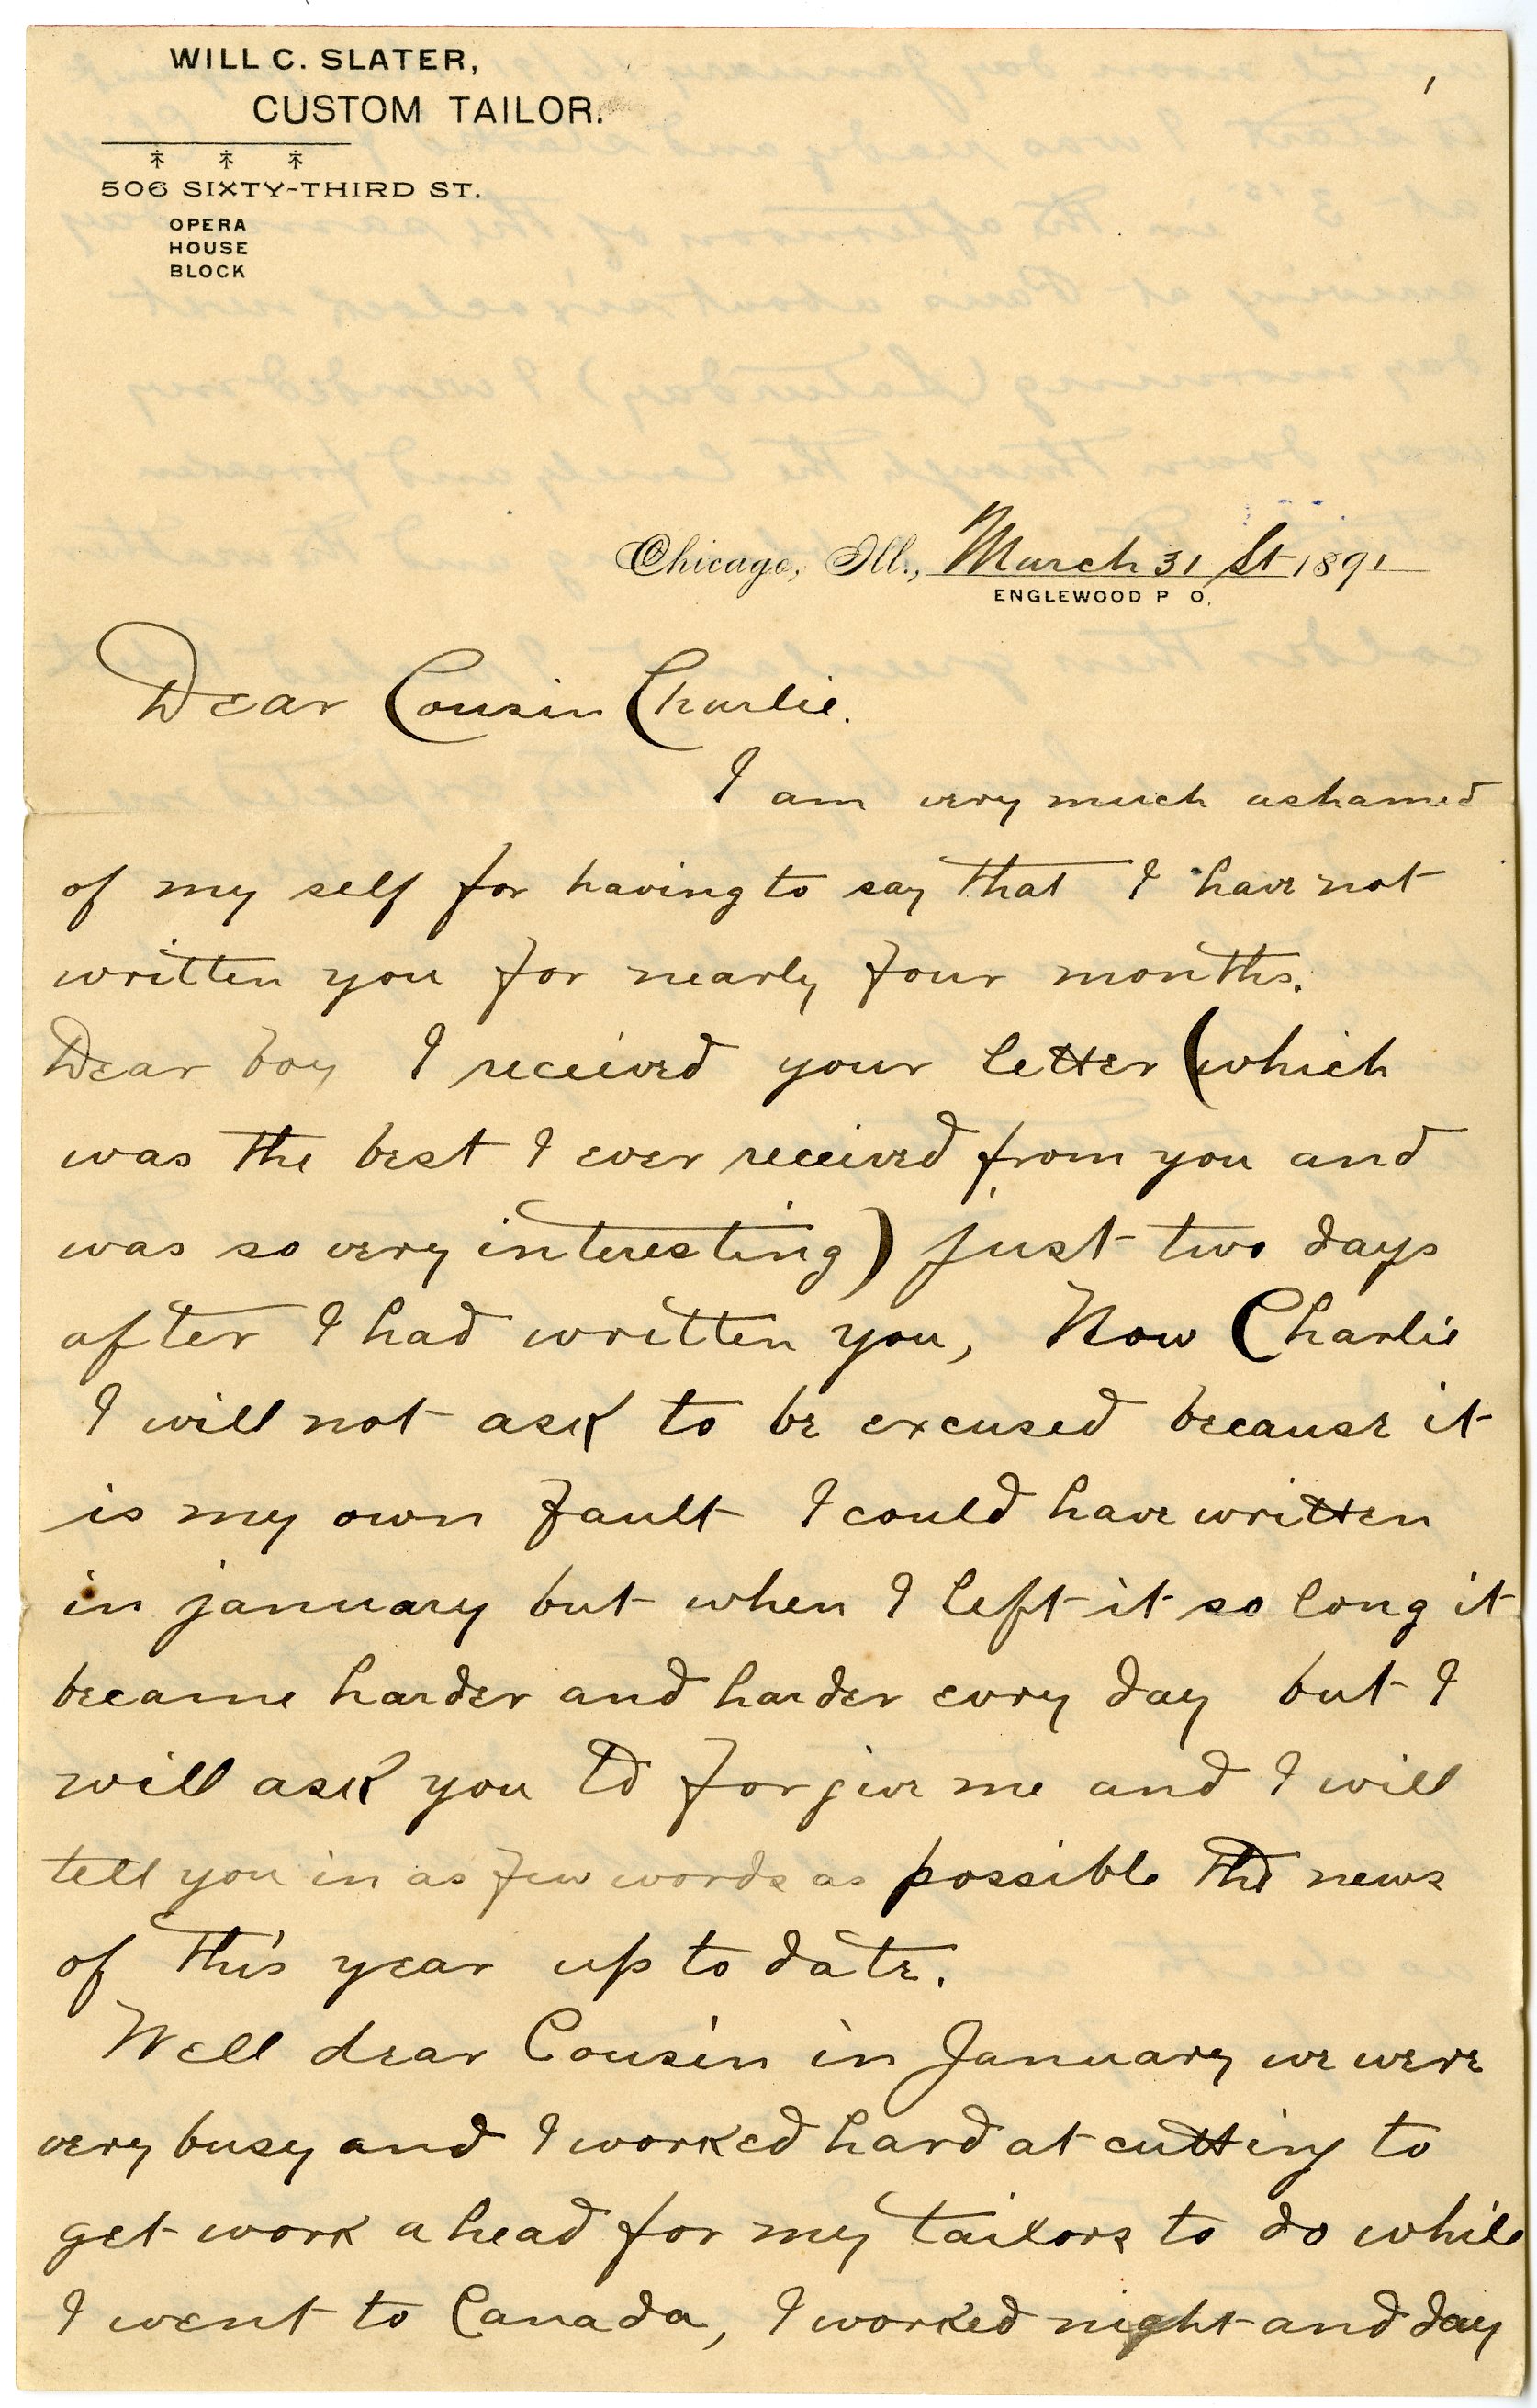 WILL C. SLATER,
CUSTOM TAILOR.
506 SIXTY-THIRD ST.
OPERA
HOUSE
BLOCK
1
Chicago, Ill., March 31 St 1891
ENGLEWOOD P O.
Dear Cousin Charlie.
I am very much ashamed
of my self for having to say that I have not
written you for nearly four months.
Dear boy I received your letter (which
was the best I ever received from you and
was so very interesting) just two days
after I had written you, Now Charlie
I will not ask to be excused because it
is my own fault I could have written
in january but when I left it so long it
became harder and harder evry day but I
will ask you to forgive me and I will
tell you in as few words as possible the news
of this year up to date.
Well dear Cousin in January we were
very busy and I worked hard at cutting to
get work ahead for my tailors to do while
I went to Canada, I worked night and day